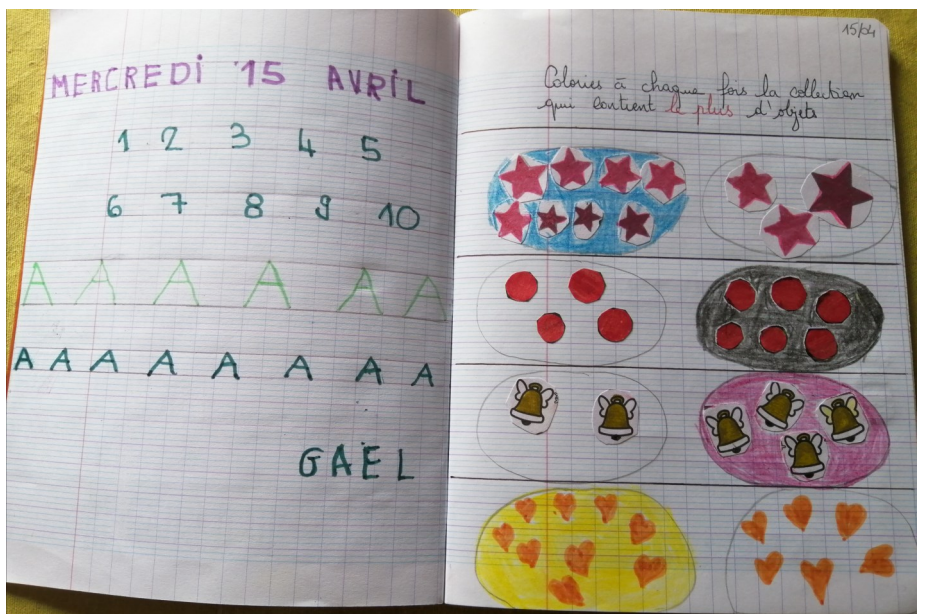 MERCREDI 15 AVRIL
1 2 3 4 5
6 7 8 9 10
A A A A A A
A A A A A A A A
GAEL
15/04
Colories à chaque fois la collection
qui contient le plus d'objets